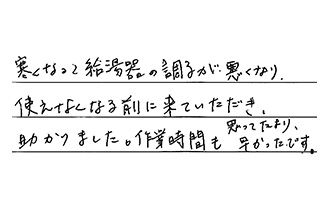 寒くなって給湯器の調子が悪くなり、
使えなくなる前に来ていただき、
助かりました。作業時間も思ってたより、早かったです。